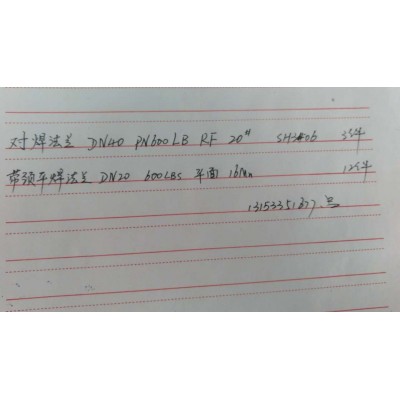 对焊法兰 DN40 PN600LB RF 20" SH3406 3件
带颈平焊法兰 DN20 600LBS 平面 16Mn 12件